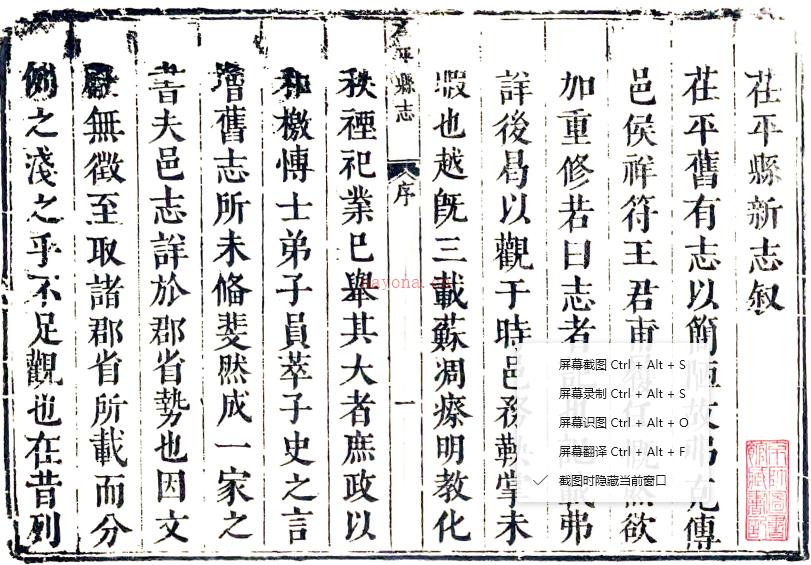 茌平縣新志叙
茌平舊有志以簡陋故弗克傳
邑侯祥符王君甫 欲
加重修若曰志者 弗
詳後曷以觀于時邑務鞅掌未
暇也越旣三載蘇凋瘵明教化
秩禋祀業巳舉其大者庶政以
和檄愽士弟子員萃子史之言
增舊志所未偹斐然成一家之
書夫邑志詳於郡省勢也因文
獻無徵至取諸郡省所載而分
之淺之乎不足觀也在昔列
平縣志
序
一
屏幕截图 Ctrl + Alt + S
屏幕录制 Ctrl + Alt + S
屏幕识图 Ctrl + Alt + O
屏幕翻译 Ctrl + Alt + F
截图时隐藏当前窗口